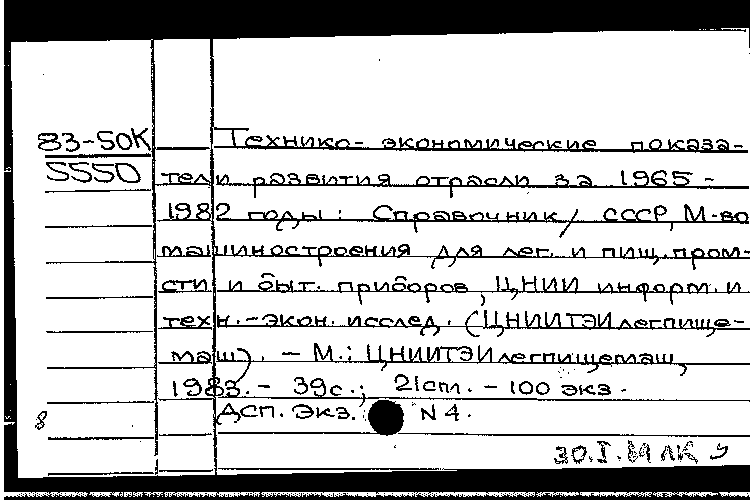 83-50К Технико-экономические показа-
5550 тели развития отрасли за 1965-
1982 годы: Справочник / СССР, М-во
машиностроения для лег. и пищ. пром-
сти и быт. приборов, ЦНИИ информ. и
техн.-экон. исслед. (ЦНИИТЭИлегпище-
маш). – М.: ЦНИИТЭИлегпищемаш,
1983.- 39с.; 21см. - 100 экз.
8 ДСП. Экз. N 4.
30.I.